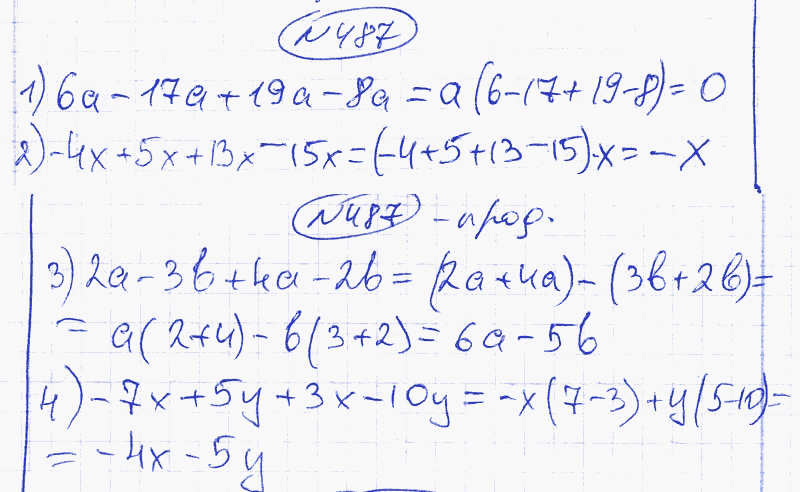 №487
1) 6a - 17a + 19a - 8a = a(6-17+19-8) = 0
2) -4x+5x+13x-15x=(-4+5+13-15)·x= -x
№487 - прод.
3) 2a - 3b + 4a - 2b = (2a+4a) - (3b+2b)=
= a(2+4) - b(3+2) = 6a - 5b
4) -7x + 5y + 3x - 10y = -x(7-3)+y(5-10)=
= -4x - 5y